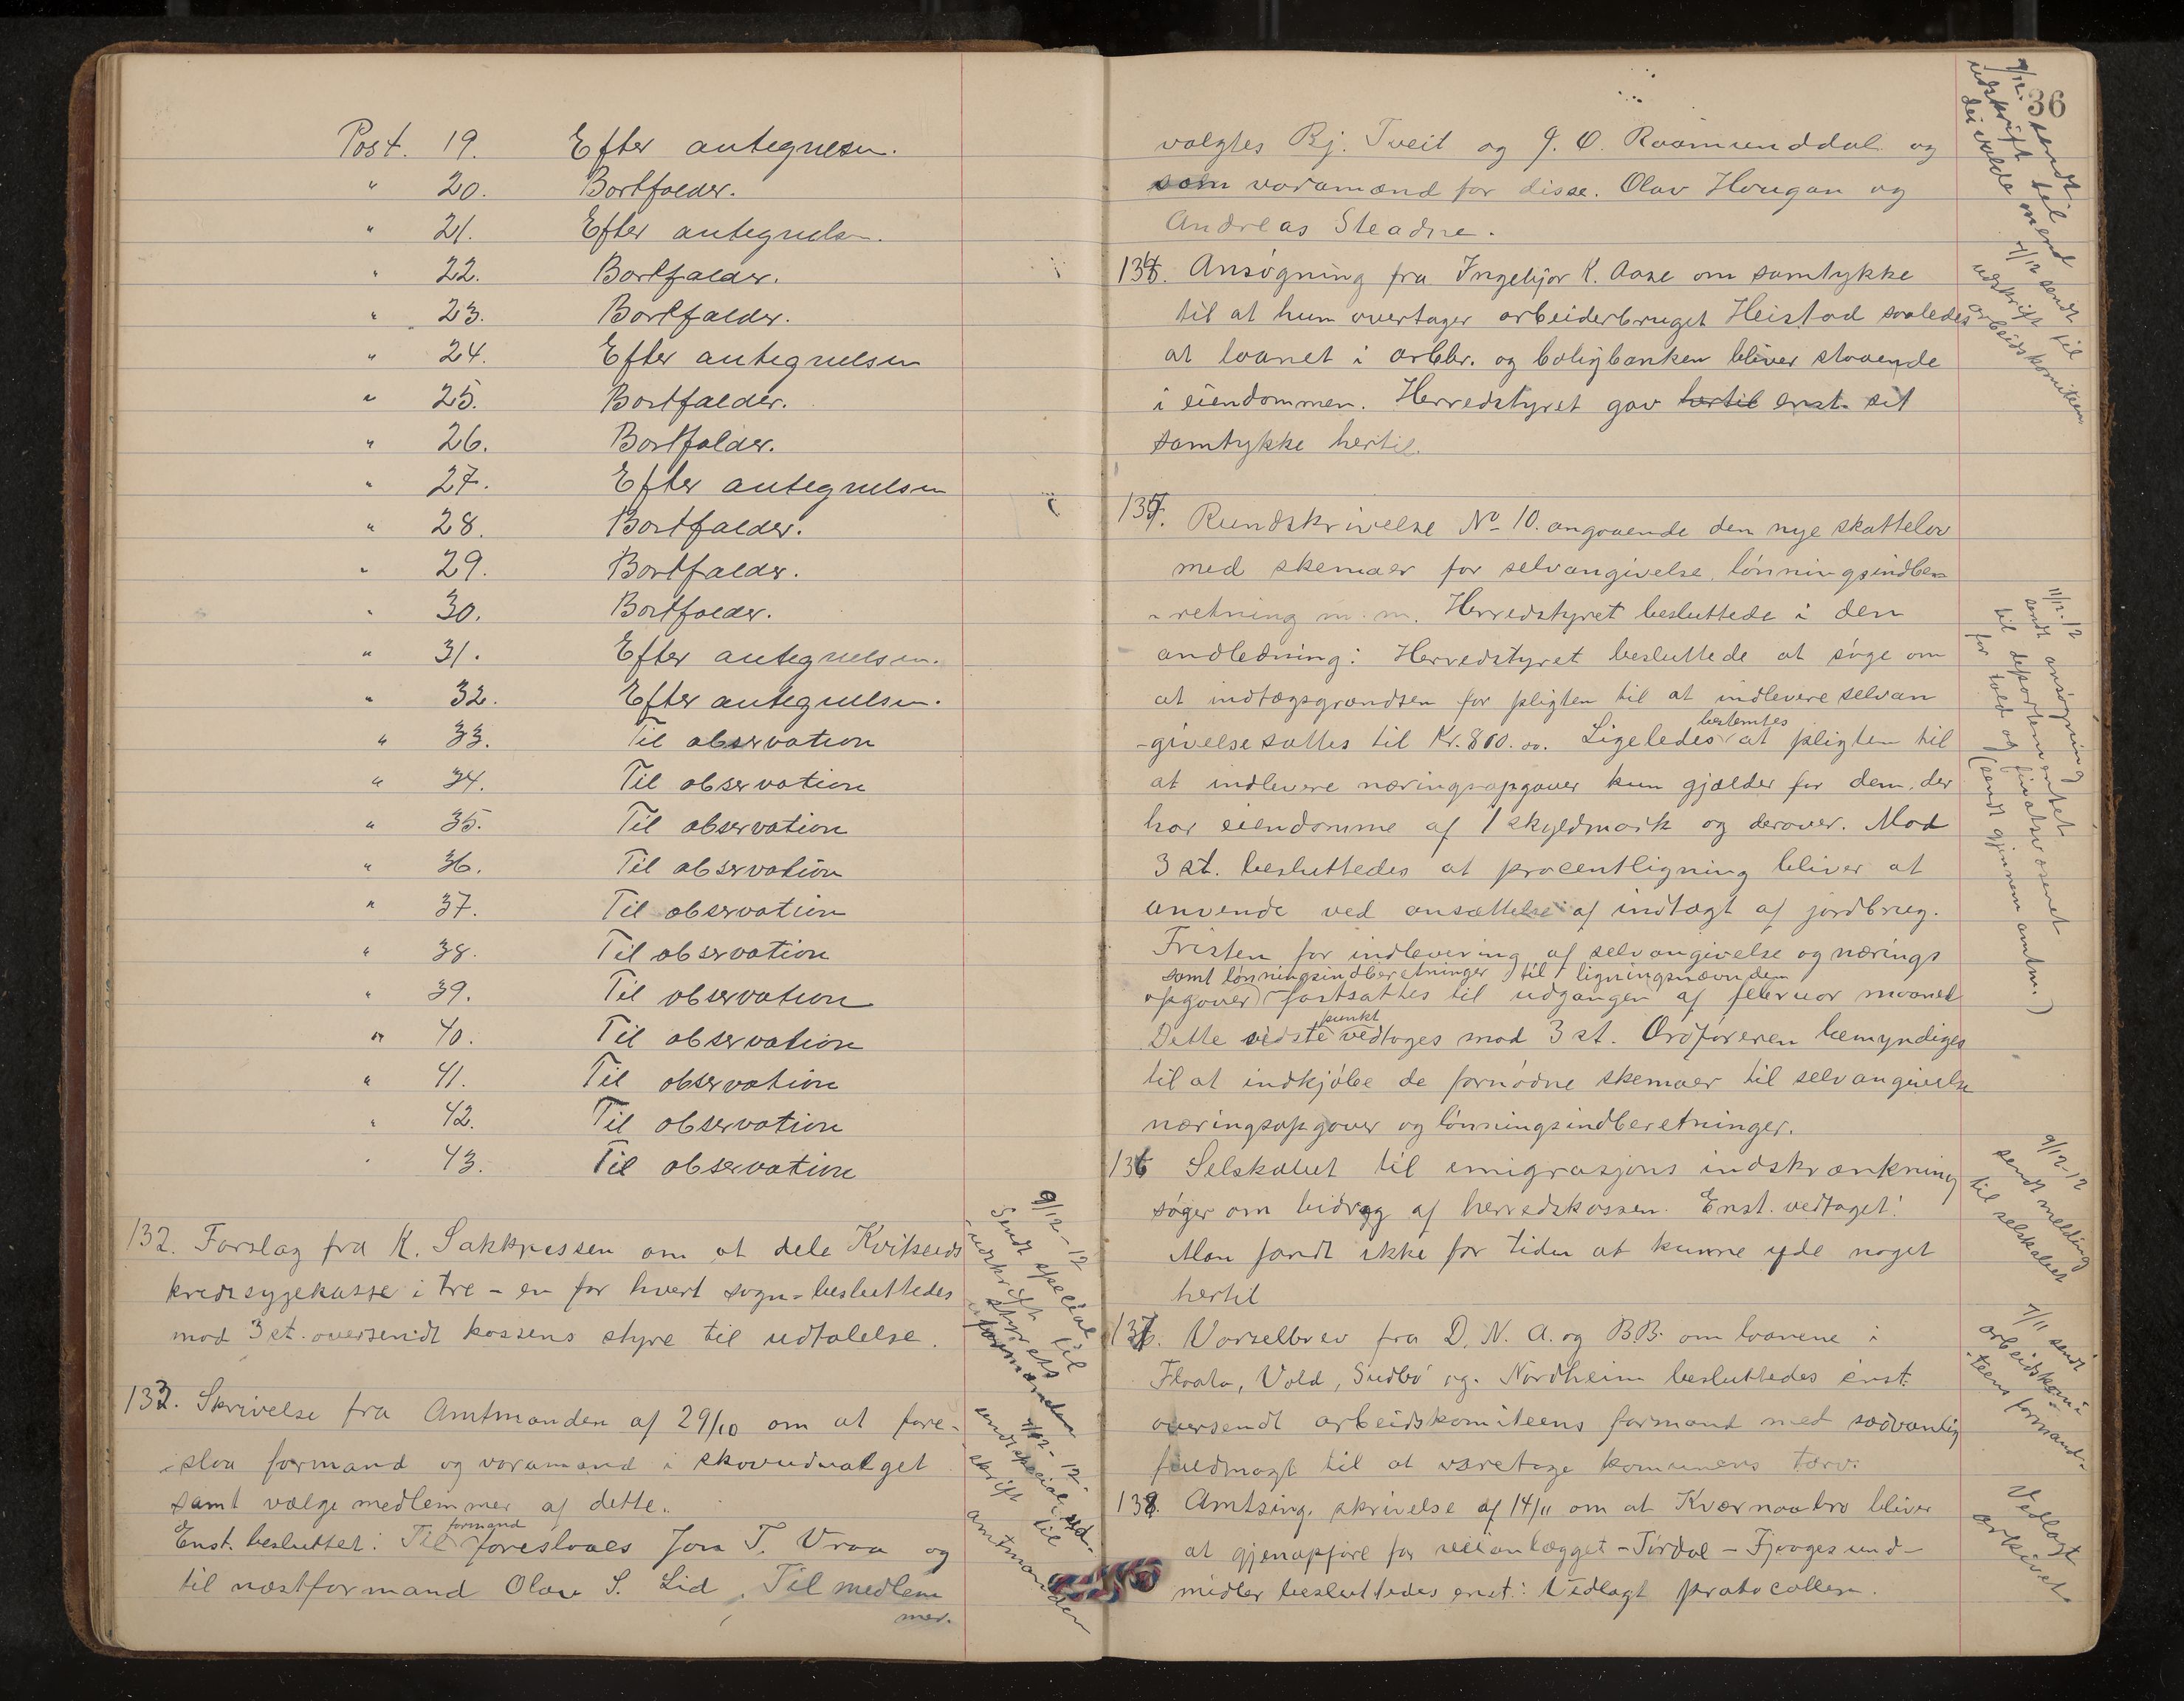 Post. 19. Efter antegnelsen.
" 20. Bortfalder.
" 21. Efter antegnelsen.
" 22. Bortfalder.
" 23. Bortfalder.
" 24. Efter antegnelsen
" 25. Bortfalder.
" 26. Bortfalder.
" 27. Efter antegnelsen
" 28. Bortfalder.
" 29. Bortfalder.
" 30. Bortfalder.
" 31. Efter antegnelsen.
" 32. Efter antegnelsen.
" 33. Til observation
" 34. Til observation
" 35. Til observation
" 36. Til observation
" 37. Til observation
" 38. Til observation
" 39. Til observation
" 40. Til observation
" 41. Til observation
" 42. Til observation
" 43. Til observation
132. Forslag fra K. Sakkriessen om at dele Kviteseids
kredssygekasse i tre - en for hvert sogn - besluttedes
mod 3 st. oversendt kassens styre til udtalelse.
9/12-12
Sendt special
udskrift til
styrets
formanden
133. Skrivelse fra Amtmanden af 29/10 om at fore-
-slaa formand og varamand i skovudvalget
samt vælge medlemmer af dette.
Enst. besluttet: Til formand foreslaaes Jon T. Vraa og
til næstformand Olav S. Lid. Til medlem
mer.
9/12-12
sendt special ud-
skrift til
amtmanden
36
valgtes Bj. Tveit og J. O. Raamunddal og
som varamænd for disse. Olav Hougan og
Andreas Steadne.
9/12. sendt
udskrift til
de valde mend
134. Ansøgning fra Ingebjør K. Aase om samtykke
til at hun overtager arbeiderbruget Heistad saaledes
at laanet i arbbr. og boligbanken bliver staaende
i eiendommen. Herredstyret gav hertil enst. sit
samtykke hertil.
9/12 sendt
udskrift til
arbeidskomiteen
135. Rundskrivelse No 10. angaaende den nye skattelov
med skemaer for selvangivelse, lønningsindbe-
-retning m. m. Herredstyret besluttede i den
andledning: Herredstyret besluttede at søge om
at indtægsgrændsen for pligten til at indlevere selvan
-givelse sættes til Kr. 800.00. Ligeledes bestemtes at pligten til
at indlevere næringsopgaver kun gjælder for dem, der
har eiendomme af 1 skyldmark og derover. Mod
3 st. besluttedes at procentligning bliver at
anvende ved ansættelse af indtægt af jordbrug.
Fristen for indlevering af selvangivelse og nærings
samt lønningsindberetninger til ligningsnævnden
opgaver fastsættes til udgangen af februar maaned
Dette sidste punkt vedtoges mod 3 st. Ordføreren bemyndiges
til at indkjøbe de fornødne skemaer til selvangivelse
næringsopgaver og lønningsindberetninger.
11/12-12
sendt ansøgning
til departementet
for told og finatsvæsenet
(sendt gjennem amtm.)
136 Selskabet til emigrasjons indskrænkning
søger om bidrag af herredskassen. Enst. vedtaget:
Man fandt ikke for tiden at kunne yde noget
hertil
9/12-12
sendt melding
til selskabet
137. Varselbrev fra D. N. A. og B.B. om laanene i
Flaata, Vold, Sudbø og Nordheim besluttedes enst.
oversendt arbeidskomiteens formand med sædvanlig
fuldmagt til at varetage komunens tarv.
7/11 sendt
arbeidskomi-
-teens formand.
138. Amtsing. skrivelse af 14/11 om at Kværnaabro bliver
at gjenopføre for veianlægget - Tørdal - Fjaagesund -
midler besluttedes enst: Vedlagt protocollen.
Vedlagt
arkivet